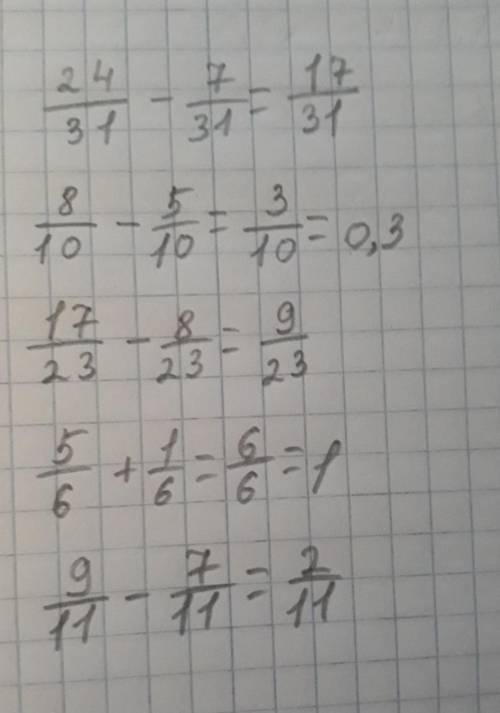 24/31 - 7/31 = 17/31
8/10 - 5/10 = 3/10 = 0,3
17/23 - 8/23 = 9/23
5/6 + 1/6 = 6/6 = 1
9/11 - 7/11 = 2/11